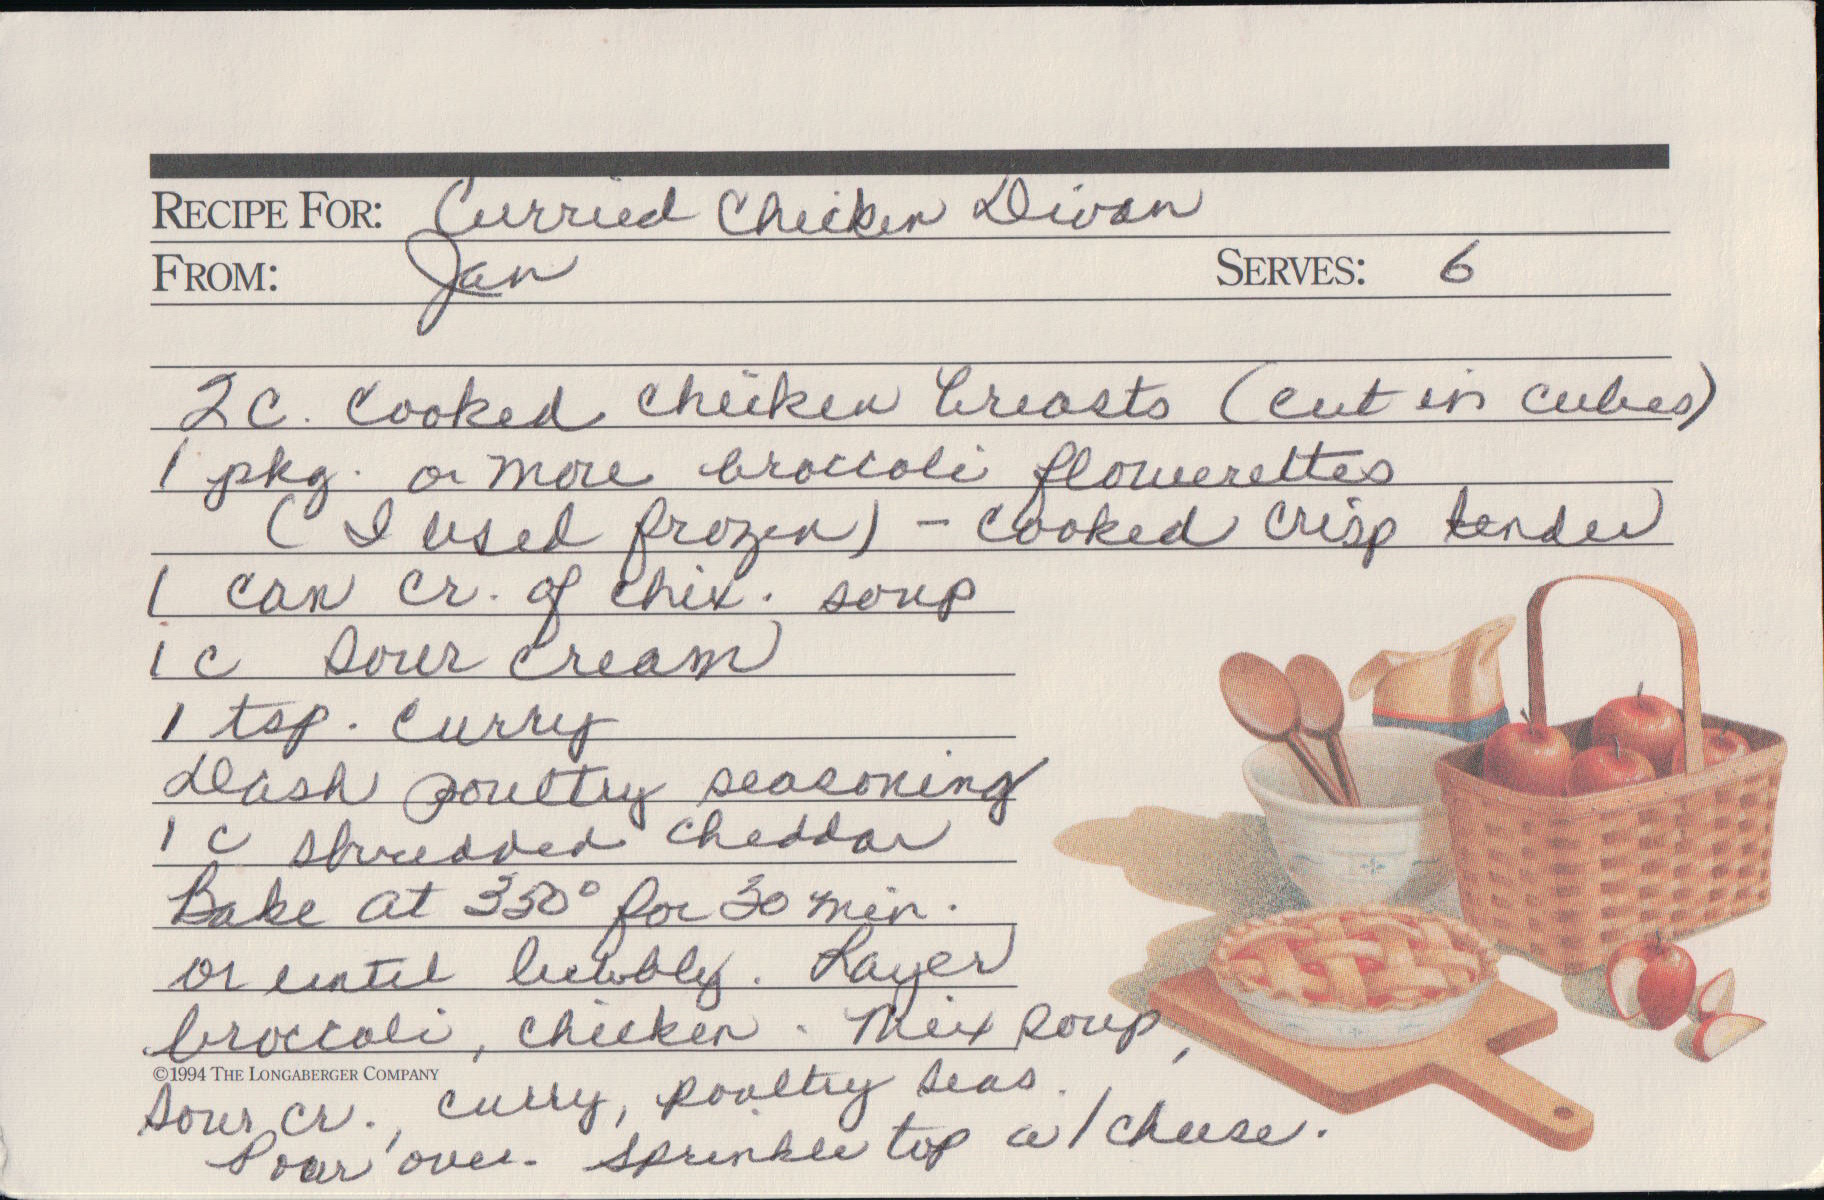 RECIPE FOR: Curried Chicken Divan
FROM: Jan SERVES: 6
2 C. Cooked chicken breasts (cut in cubes)
1 pkg. or more broccoli flowerettes
( I used frozen) - cooked crisp tender
1 can cr. of chix. soup
1 c sour cream
1 tsp. curry
Dash poultry seasoning
1 c shredded cheddar
Bake at 350° for 30 min.
or until bubbly. Layer
broccoli, chicken. Mix soup,
©1994 THE LONGABERGER COMPANY
Sour cr., curry, poultry seas.
Pour over. Sprinkle top w/cheese.